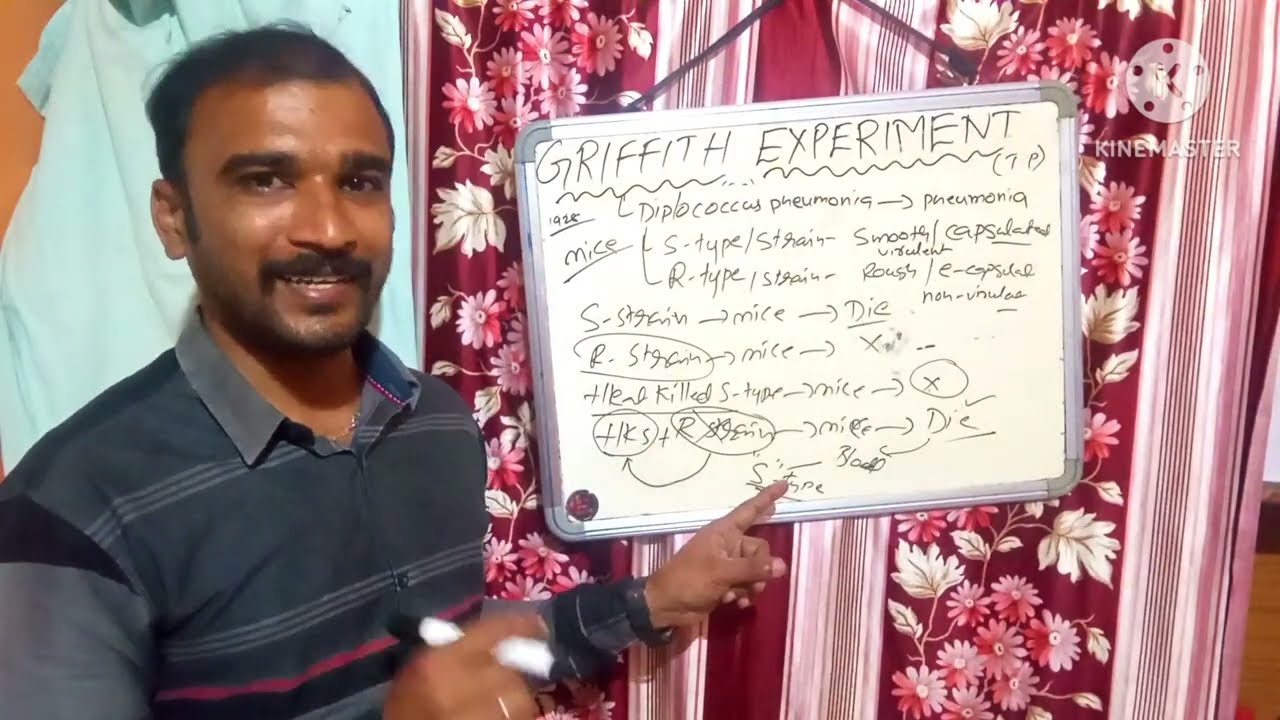 GRIFFITH EXPERIMENT
(T P)
KINEMASTER
1928
Diplococcus pneumonia → pneumonia
mice
S-type/strain- Smooth/capsulated
virulent
R-type/strain- Rough/
S-strain → mice → Die
R-strain → mice → X
Heat Killed S-type → mice → X
HKS + R strain → mice → Die
"S" type